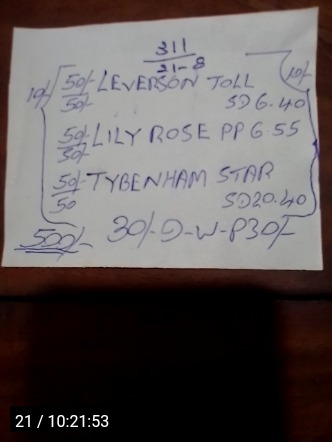 311
21-8
10/- 50/- LEVERSON TOLL 10/-
50/- SD 6.40
50/- LILY ROSE PP 6.55
50/-
50/- TYBENHAM STAR
50 SD 20.40
500/- 30/- D-W-P 30/-
21 / 10:21:53